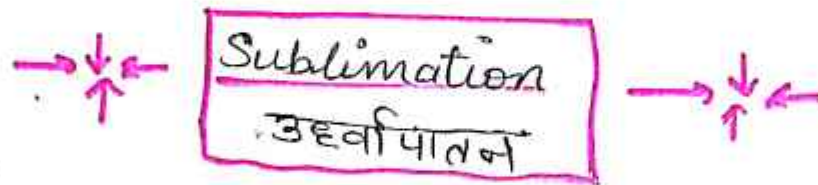 Sublimation
उर्ध्वापातन